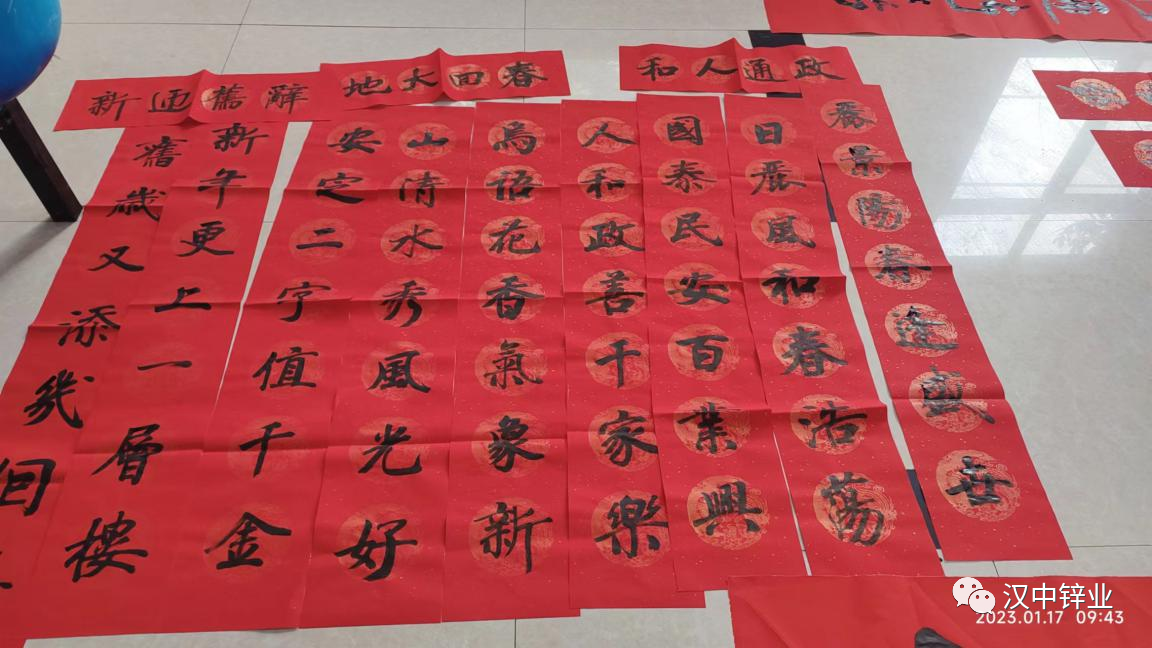 辭舊迎新
春回大地
政通人和
麗景陽春逢盛世
日麗風和春浩蕩
國泰民安百業興
人和政善千家樂
鳥語花香氣象新
山清水秀風光好
安定二字值千金
新年更上一層樓
舊歲又添幾
汉中锌业
2023.01.17 09:43